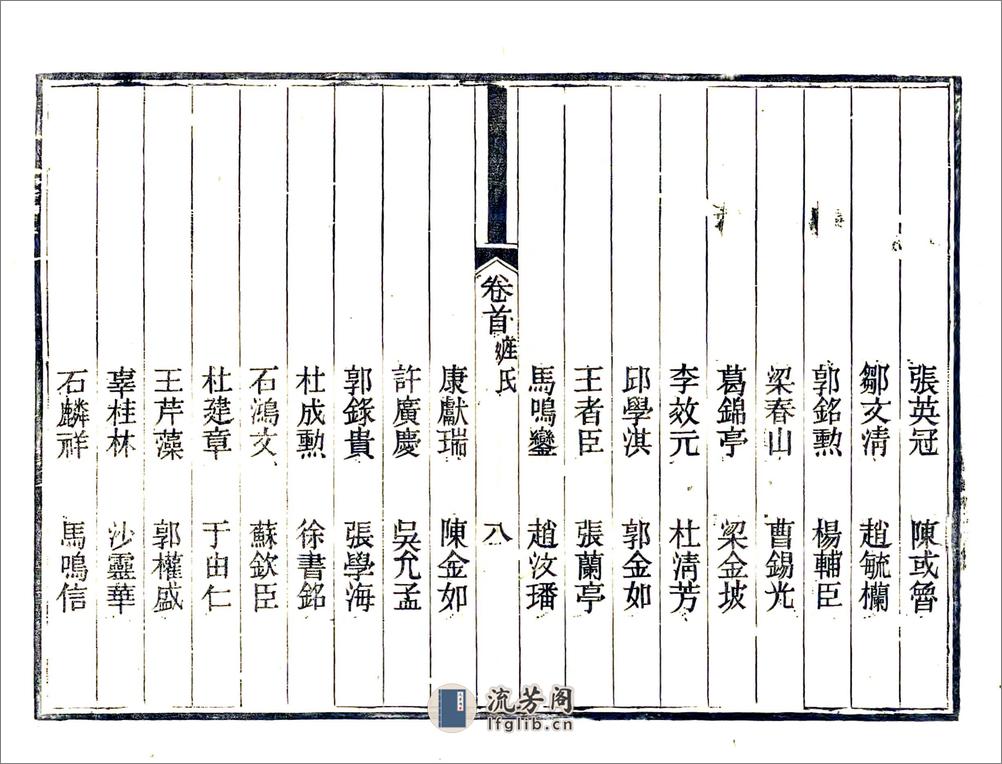 張英冠 陳或魯
鄒文清 趙毓欄
郭銘勲 楊輔臣
梁春山 曹錫光
葛錦亭 梁金坡
李效元 杜清芳
邱學淇 郭金如
王者臣 張蘭亭
馬鳴鑾 趙汝璠
卷首 姓氏 八
康獻瑞 陳金如
許廣慶 吳允孟
郭錄貴 張學海
杜成勲 徐書銘
石鴻文 蘇欽臣
杜建章 于由仁
王芹藻 郭權盛
辜桂林 沙靈華
石麟祥 馬鳴信
流芳阁
lfglib.cn